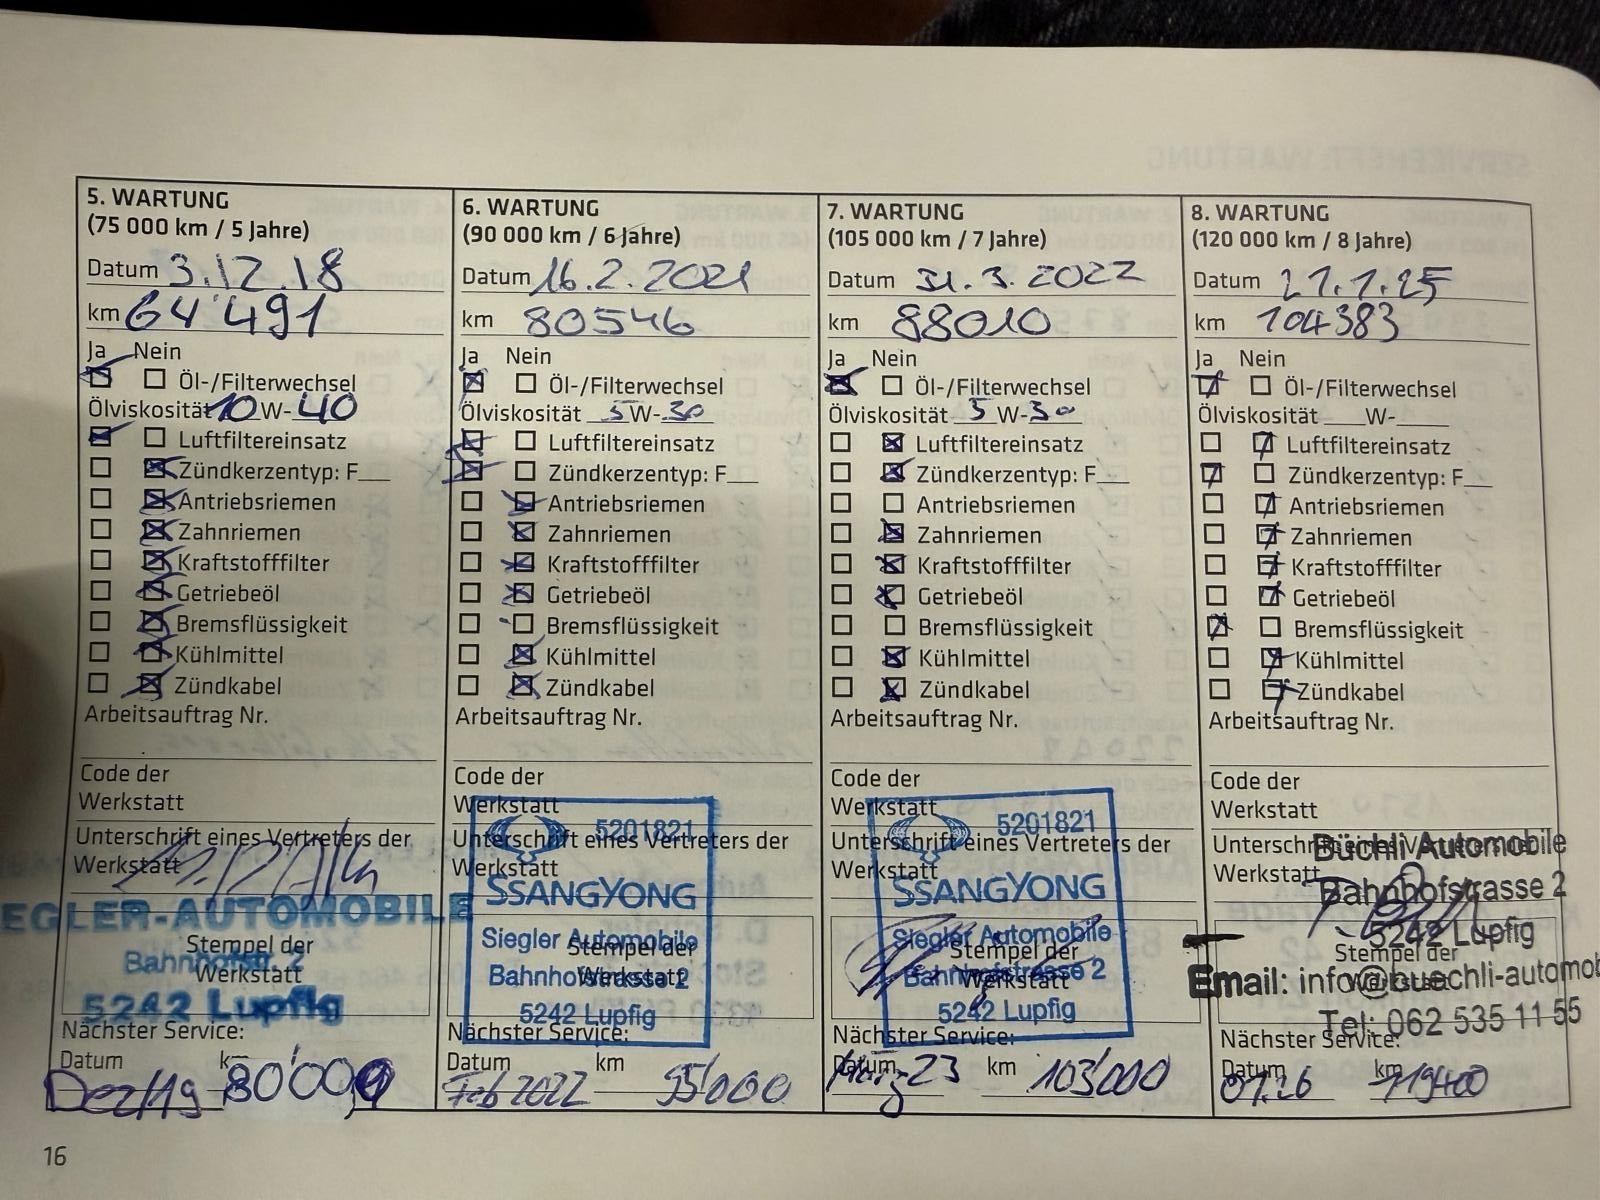 5. WARTUNG
(75 000 km / 5 Jahre)
Datum 3.12.18
km 64'491
Ja Nein
Öl-/Filterwechsel
Ölviskosität 10 W- 40
Luftfiltereinsatz
Zündkerzentyp: F___
Antriebsriemen
Zahnriemen
Kraftstofffilter
Getriebeöl
Bremsflüssigkeit
Kühlmittel
Zündkabel
Arbeitsauftrag Nr.
Code der
Werkstatt
Unterschrift eines Vertreters der
Werkstatt
EGLER-AUTOMOBILE
Stempel der
Bahnhofstr. 2
Werkstatt
5242 Lupfig
Nächster Service:
Datum km
Dez/19 80'000
6. WARTUNG
(90 000 km / 6 Jahre)
Datum 16.2.2021
km 80546
Ja Nein
Öl-/Filterwechsel
Ölviskosität 5 W- 30
Luftfiltereinsatz
Zündkerzentyp: F___
Antriebsriemen
Zahnriemen
Kraftstofffilter
Getriebeöl
Bremsflüssigkeit
Kühlmittel
Zündkabel
Arbeitsauftrag Nr.
Code der
Werkstatt
5201821
Unterschrift eines Vertreters der
Werkstatt
SSANGYONG
Siegler Automobile
Stempel der
Bahnhofstrasse 2
Werkstatt
5242 Lupfig
Nächster Service:
Datum km
Feb 2022 95'000
7. WARTUNG
(105 000 km / 7 Jahre)
Datum 31.3.2022
km 88010
Ja Nein
Öl-/Filterwechsel
Ölviskosität 5 W- 30
Luftfiltereinsatz
Zündkerzentyp: F___
Antriebsriemen
Zahnriemen
Kraftstofffilter
Getriebeöl
Bremsflüssigkeit
Kühlmittel
Zündkabel
Arbeitsauftrag Nr.
Code der
Werkstatt
5201821
Unterschrift eines Vertreters der
Werkstatt
SSANGYONG
Siegler Automobile
Stempel der
Bahnhofstrasse 2
Werkstatt
5242 Lupfig
Nächster Service:
Datum km
März 23 103'000
8. WARTUNG
(120 000 km / 8 Jahre)
Datum 21.1.25
km 104383
Ja Nein
Öl-/Filterwechsel
Ölviskosität ___W-___
Luftfiltereinsatz
Zündkerzentyp: F___
Antriebsriemen
Zahnriemen
Kraftstofffilter
Getriebeöl
Bremsflüssigkeit
Kühlmittel
Zündkabel
Arbeitsauftrag Nr.
Code der
Werkstatt
Unterschrift eines Vertreters der
Büchli Automobile
Werkstatt
Bahnhofstrasse 2
5242 Lupfig
Stempel der
Werkstatt
Email: info@buechli-automob
Tel: 062 535 11 55
Nächster Service:
Datum km
01.26 119400
16